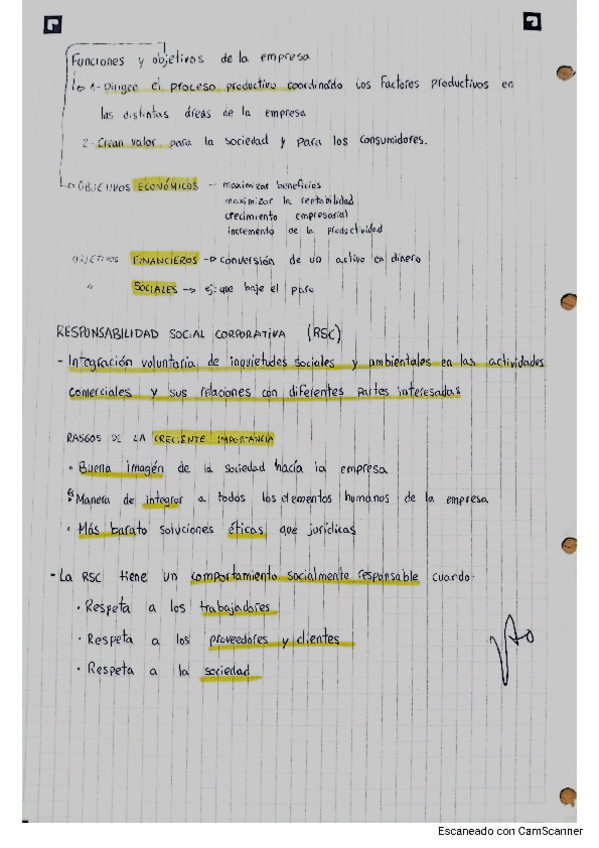 Funciones y objetivos de la empresa
1- Dirigen el proceso productivo coordinando los factores productivos en
las distintas áreas de la empresa
2- Crean valor para la sociedad y para los consumidores.
OBJETIVOS ECONÓMICOS - maximizar beneficios
maximizar la rentabilidad
crecimiento empresarial
incremento de la productividad
OBJETIVOS FINANCIEROS → conversión de un activo en dinero
" SOCIALES → ej: que baje el paro
RESPONSABILIDAD SOCIAL CORPORATIVA (RSC)
- Integración voluntaria de inquietudes sociales y ambientales en las actividades
comerciales y sus relaciones con diferentes partes interesadas
RASGOS DE LA CRECIENTE IMPORTANCIA
• Buena imagén de la sociedad hacía la empresa
• Manera de integrar a todos los elementos humanos de la empresa
• Más barato soluciones éticas que jurídicas
- La RSC tiene un comportamiento socialmente responsable cuando:
• Respeta a los trabajadores
• Respeta a los proveedores y clientes
• Respeta a la sociedad
Escaneado con CamScanner